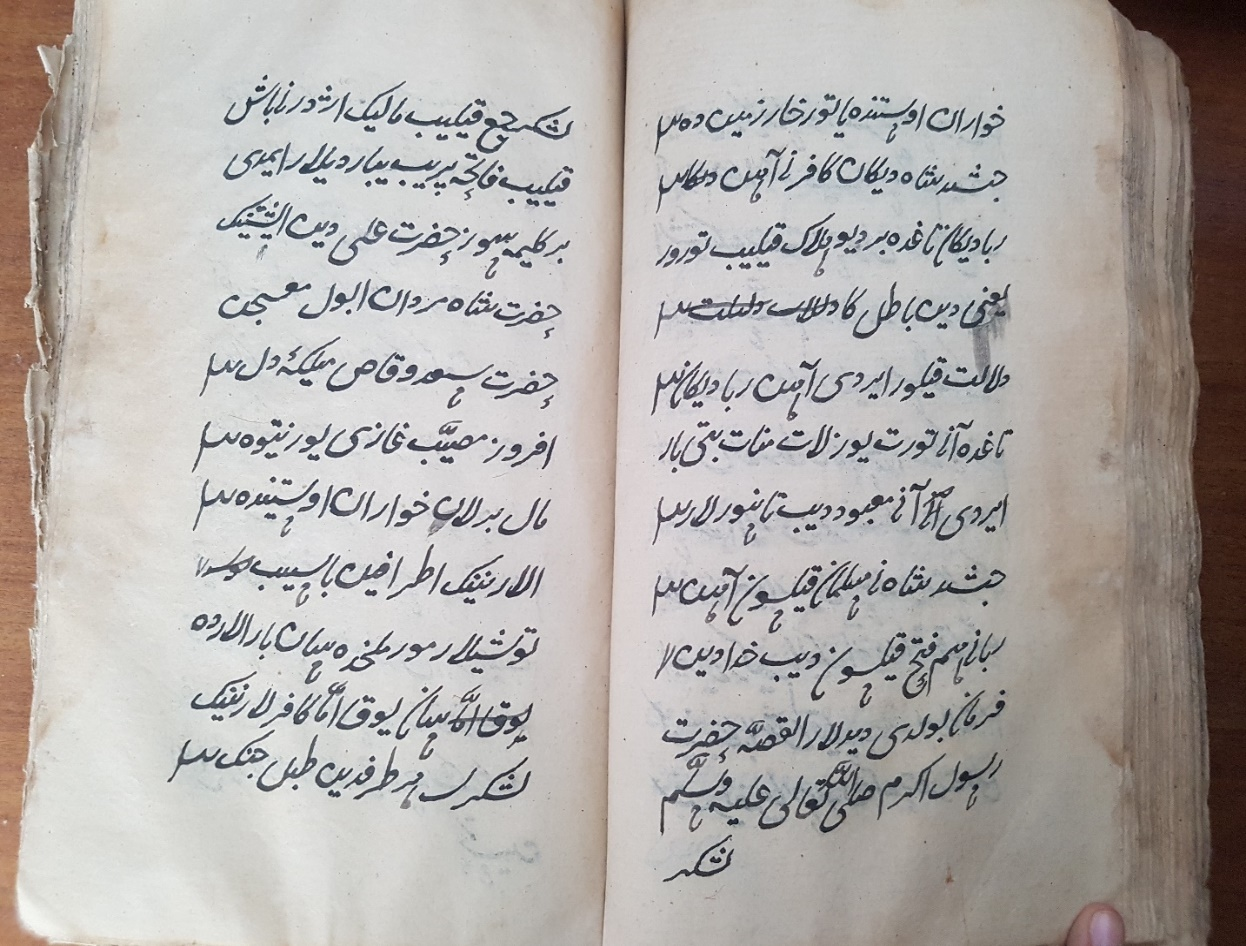 خواران اوستنده یاتور خاور زمین ده
جمشد شاه دیکان کافرنی آمدن
رباط دیکان تاغده بر دیو هلاک قیلیب تورور
یعنی دین باطل کا
دلالت قیلور ایردی آمدن ربا دیکان
تاغده آنی تورت یوز لات منات بتی بار
ایردی آنی معبود دیب تانیورلار
جمشد شاه نی مسلمان قیلسون آمدن
ربانی هم فتح قیلسون دیب خدا دین
فرمان بولدی دیدلار القصّه حضرت
رسول اکرم صلی اللّه تعالی علیه وسلّم
لشکر
لشکر جمع قیلیب مالیک اژدرنی باش
قیلیب فاتحه بریب یباردیلار ایمدی
بر کلیمه سوز حضرت علی دین ایشتنیک
حضرت شاه مردان ابول معجن
حضرت سعد وقاص میلکۀ دل
افروز مصیّب غازی یوز نیتوه
مال برلان خواران اوستنده
اللارنینک اطرافین باسیب
توشتیلار مور ملخده سان بار اللارده
یوق سان یوق امّا کافرلارنینک
لشکری هر طرفدین طبل جنک